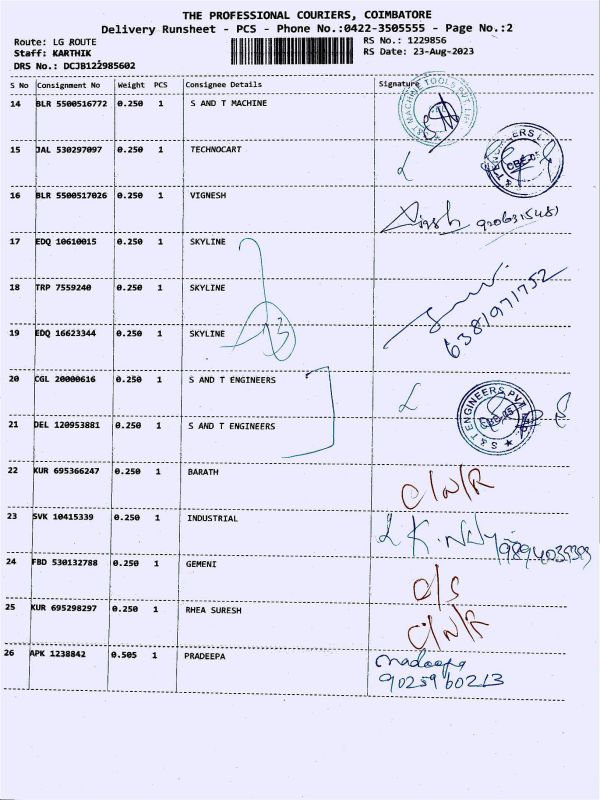 THE PROFESSIONAL COURIERS, COIMBATORE
Delivery Runsheet - PCS - Phone No.:0422-3505555 - Page No.:2
Route: LG ROUTE RS No.: 1229856
Staff: KARTHIK RS Date: 23-Aug-2023
DRS No.: DCJB122985602
S No Consignment No Weight PCS Consignee Details Signature
14 BLR 5500516772 0.250 1 S AND T MACHINE
15 JAL 530297097 0.250 1 TECHNOCART
16 BLR 5500517026 0.250 1 VIGNESH
17 EDQ 10610015 0.250 1 SKYLINE
18 TRP 7559240 0.250 1 SKYLINE 6381971752
19 EDQ 16623344 0.250 1 SKYLINE
20 CGL 20000616 0.250 1 S AND T ENGINEERS
S & T ENGINEERS PVT
21 DEL 120953881 0.250 1 S AND T ENGINEERS
22 KUR 695366247 0.250 1 BARATH C/N/R
23 SVK 10415339 0.250 1 INDUSTRIAL
24 FBD 530132788 0.250 1 GEMENI O/S
25 KUR 695298297 0.250 1 RHEA SURESH C/N/R
26 APK 1238842 0.505 1 PRADEEPA
9025960213